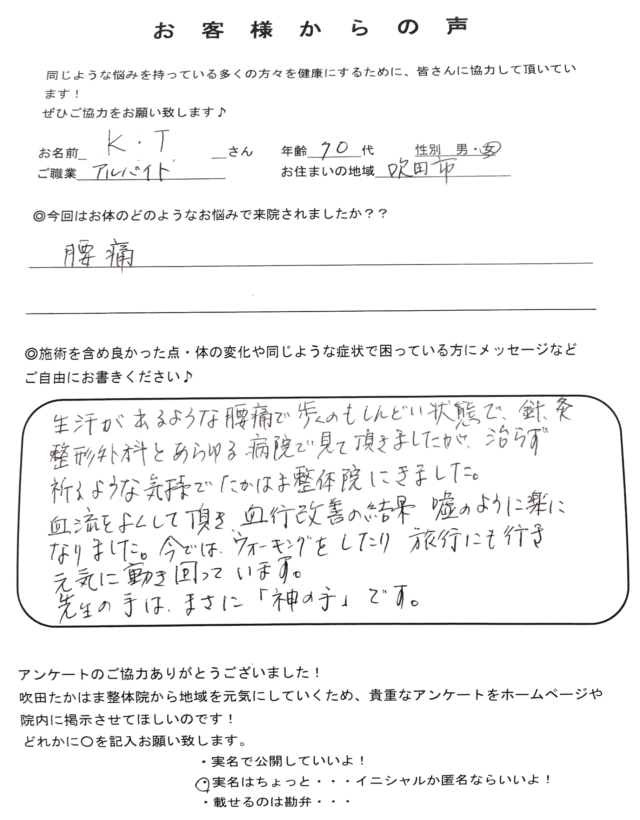 お客様からの声
同じような悩みを持っている多くの方々を健康にするために、皆さんに協力して頂いてい
ます！
ぜひご協力をお願い致します♪
お名前 K・T さん 年齢 70 代 性別 男・女
ご職業 アルバイト お住まいの地域 吹田市
◎今回はお体のどのようなお悩みで来院されましたか？？
腰痛
◎施術を含め良かった点・体の変化や同じような症状で困っている方にメッセージなど
ご自由にお書きください♪
生汗があるような腰痛で歩くのもしんどい状態で、針、灸
整形外科とあらゆる病院で見て頂きましたが、治らず
祈るような気持でたかはま整体院にきました。
血流をよくして頂き、血行改善の結果 嘘のように楽に
なりました。今では、ウォーキングをしたり 旅行にも行き
元気に動き回っています。
先生の手は、まさに「神の手」です。
アンケートのご協力ありがとうございました！
吹田たかはま整体院から地域を元気にしていくため、貴重なアンケートをホームページや
院内に掲示させてほしいのです！
どれかに〇を記入お願い致します。
・実名で公開していいよ！
・実名はちょっと・・・イニシャルか匿名ならいいよ！
・載せるのは勘弁・・・